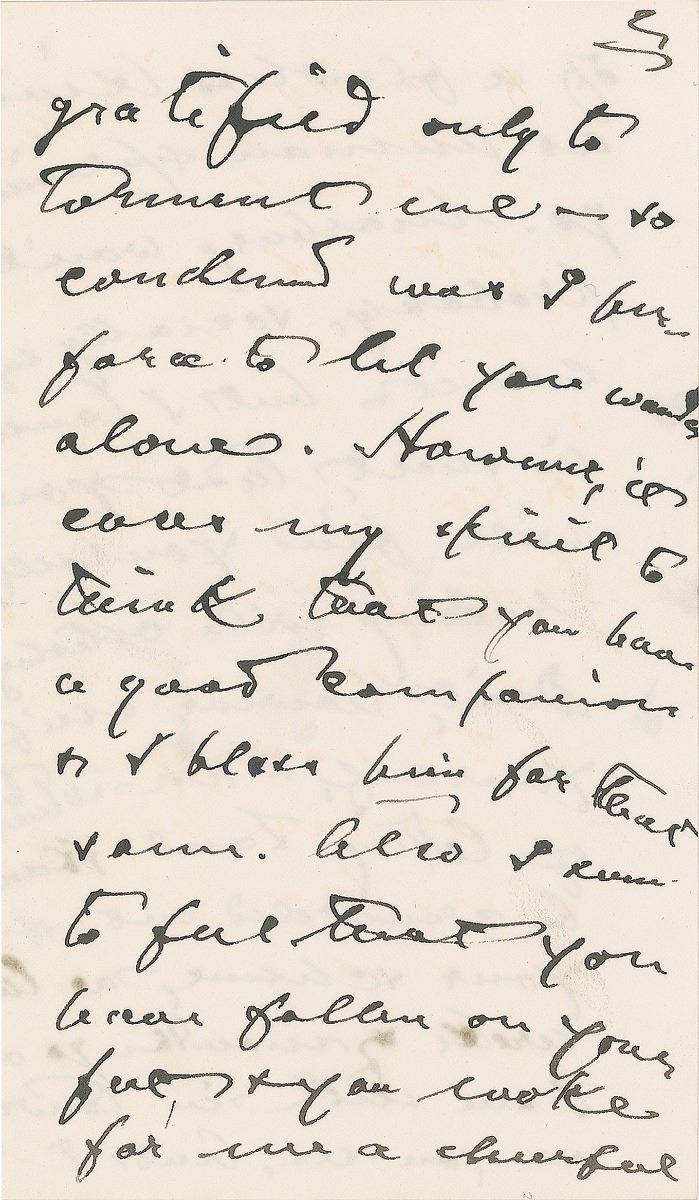 3
gratified only to
torment me — so
condemned was I per-
force to let you wander
alone. However, it
eases my spirit to
think that you have
a good companion
& I bless him for that
same. Also I seem
to feel that you
have fallen on your
feet, & you make
for me a cheerful